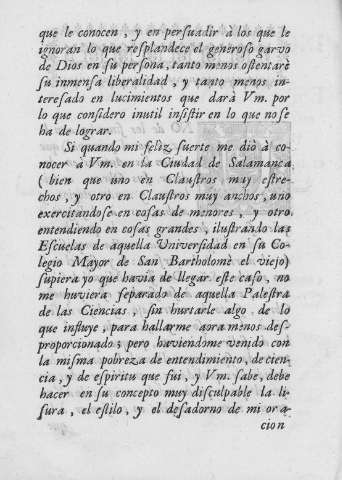 que le conocen, y en persuadir à los que le
ignoran lo que resplandece el generoso garvo
de Dios en su persona, tanto menos ostentarè
su inmensa liberalidad, y tanto menos in-
teresado en lucimientos que darà Vm. por
lo que considero inutil insistir en lo que no se
ha de lograr.
Si quando mi feliz suerte me diò à co-
nocer à Vm. en la Ciudad de Salamanca
(bien que uno en Claustros muy estre-
chos, y otro en Claustros muy anchos, uno
exercitandose en cosas de menores, y otro
entendiendo en cosas grandes, ilustrando las
Escuelas de aquella Universidad en su Co-
legio Mayor de San Bartholomè el viejo)
supiera yo que havia de llegar este caso, no
me huviera separado de aquella Palestra
de las Ciencias, sin hurtarle algo de lo
que influye, para hallarme aora menos des-
proporcionado; pero haviendome venido con
la misma pobreza de entendimiento, de cien-
cia, y de espiritu que fui, y Vm. sabe, debe
hacer en su concepto muy disculpable la li-
sura, el estilo, y el desadorno de mi ora-
cion